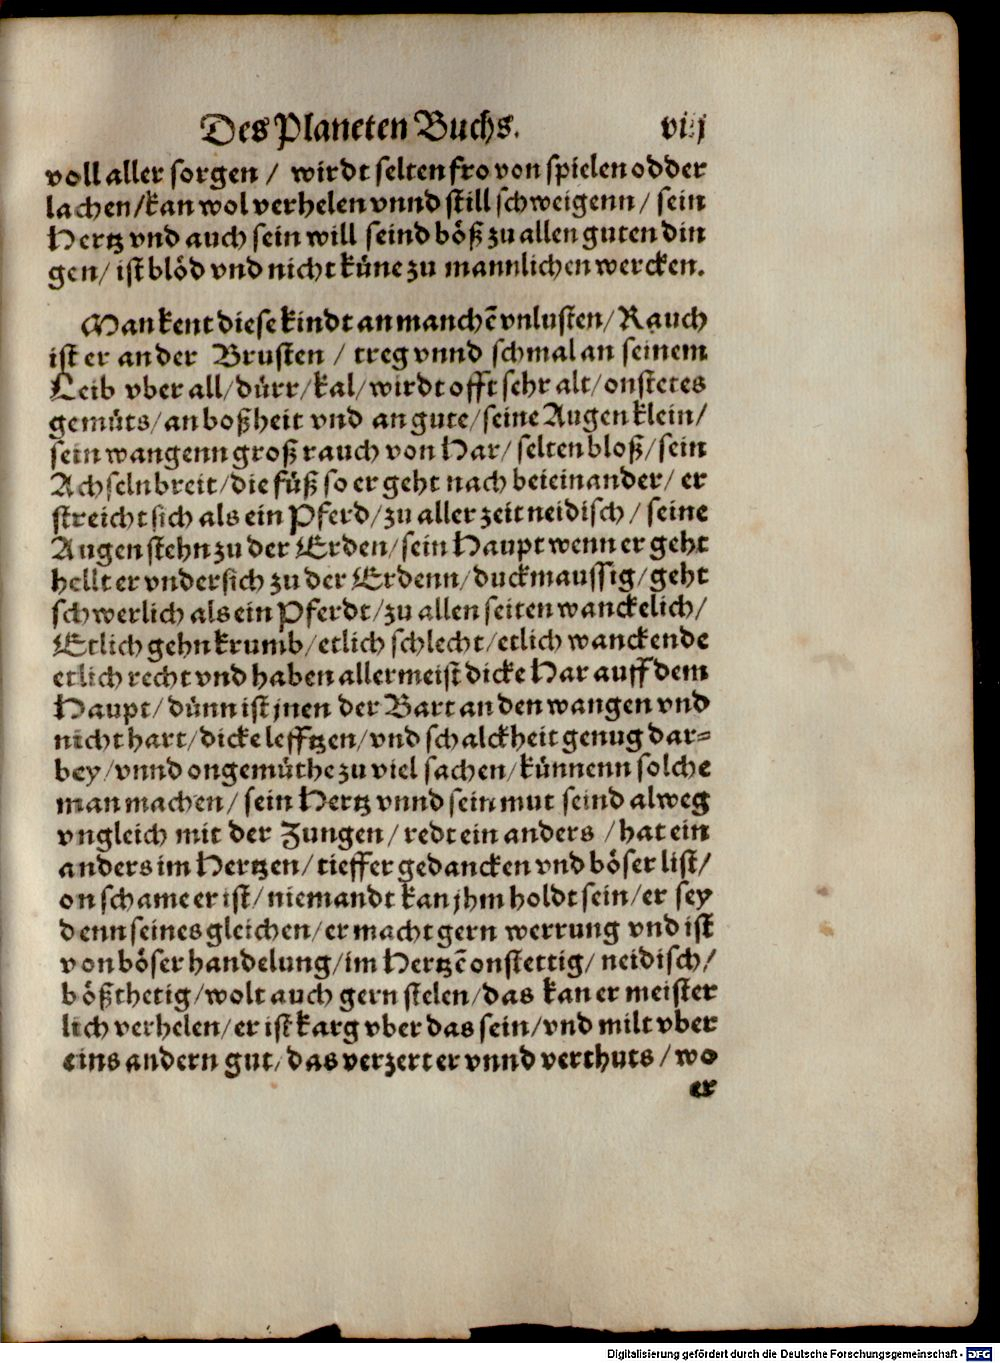 Des Planeten Buchs. viij
voll aller sorgen / wirdt selten fro von spielen odder
lachen/kan wol verhelen vnnd still schweigenn/ sein
Hertz vnd auch sein will seind böß zu allen guten din
gen/ ist blöd vnd nicht küne zu mannlichen wercken.
Man kent diese kindt an manchē vnlusten/ Rauch
ist er an der Brusten / treg vnnd schmal an seinem
Leib vber all/dürr/kal/wirdt offt sehr alt/onstetes
gemüts/an boßheit vnd an gute/seine Augen klein/
sein wangenn groß rauch von Har/ selten bloß/sein
Achseln breit/die füß so er geht nach beieinander/ er
streicht sich als ein Pferd/zu aller zeit neidisch/ seine
Augen stehn zu der Erden/sein Haupt wenn er geht
hellt er vndersich zu der Erdenn/duckmaussig/geht
schwerlich als ein Pferdt/zu allen seiten wanckelich/
Etlich gehn krumb/etlich schlecht/etlich wanckende
etlich recht vnd haben allermeist dicke Har auff dem
Haupt/dünn ist jnen der Bart an den wangen vnd
nicht hart/dicke lefftzen/vnd schalckheit genug dar-
bey/vnnd ongemüthe zu viel sachen/künnenn solche
man machen/ sein Hertz vnnd sein mut seind alweg
vngleich mit der Zungen/redt ein anders /hat ein
anders im Hertzen/tieffer gedancken vnd böser list/
on schame er ist/niemandt kan jhm holdt sein/er sey
denn seines gleichen/er macht gern werrung vnd ist
von böser handelung/im Hertzē onstettig/ neidisch/
bößthetig/wolt auch gern stelen/das kan er meister
lich verhelen/er ist karg vber das sein/vnd milt vber
eins andern gut/das verzert er vnnd verthuts/wo
er
Digitalisierung gefördert durch die Deutsche Forschungsgemeinschaft - DFG